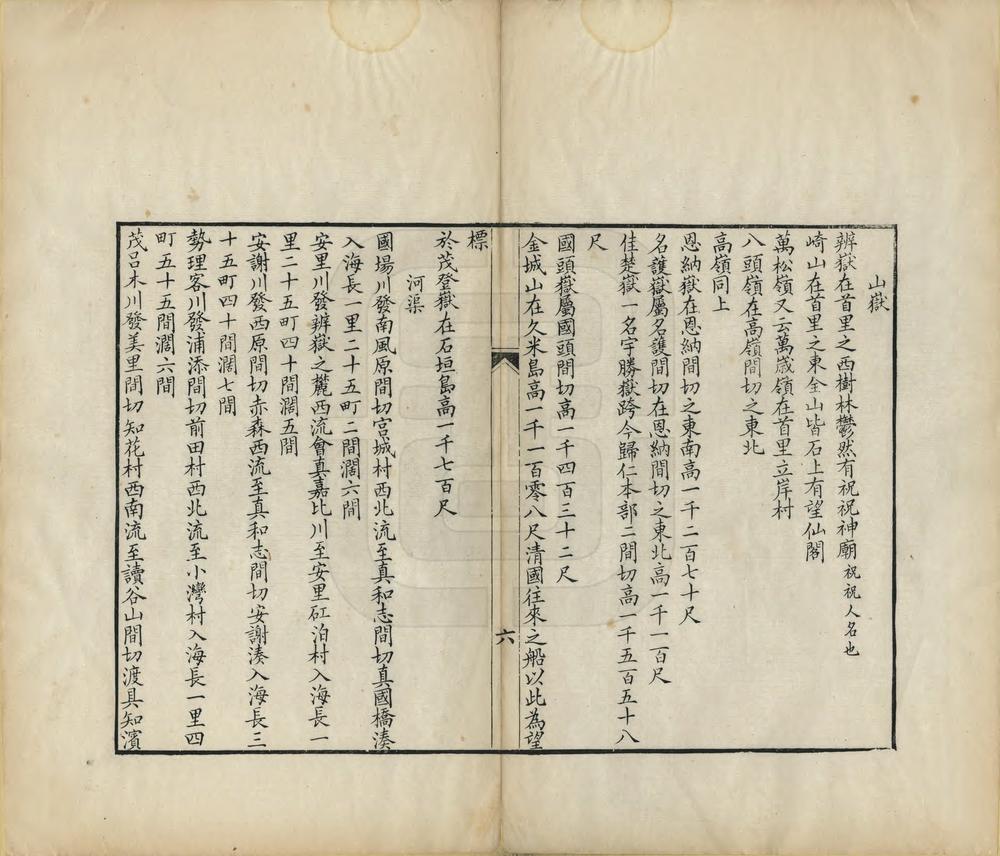 山嶽
辨嶽在首里之西樹林鬱然有祝祝神廟祝祝人名也
崎山在首里之東全山皆石上有望仙閣
萬松嶺又云萬歲嶺在首里立岸村
八頭嶺在高嶺間切之東北
高嶺同上
恩納嶽在恩納間切之東南高一千二百七十尺
名護嶽屬名護間切在恩納間切之東北高一千一百尺
佳楚嶽一名宇勝嶽跨今歸仁本部二間切高一千五百五十八
尺
國頭嶽屬國頭間切高一千四百三十二尺
金城山在久米島高一千一百零八尺清國往來之船以此為望
六
標
於茂登嶽在石垣島高一千七百尺
河渠
國場川發南風原間切宮城村西北流至真和志間切真國橋湊
入海長一里二十五町二間濶六間
安里川發辨嶽之麓西流會真嘉比川至安里矼泊村入海長一
里二十五町四十間濶五間
安謝川發西原間切赤森西流至真和志間切安謝湊入海長三
十五町四十間濶七間
勢理客川發浦添間切前田村西北流至小灣村入海長一里四
町五十五間濶六間
茂呂木川發美里間切知花村西南流至讀谷山間切渡具知濱